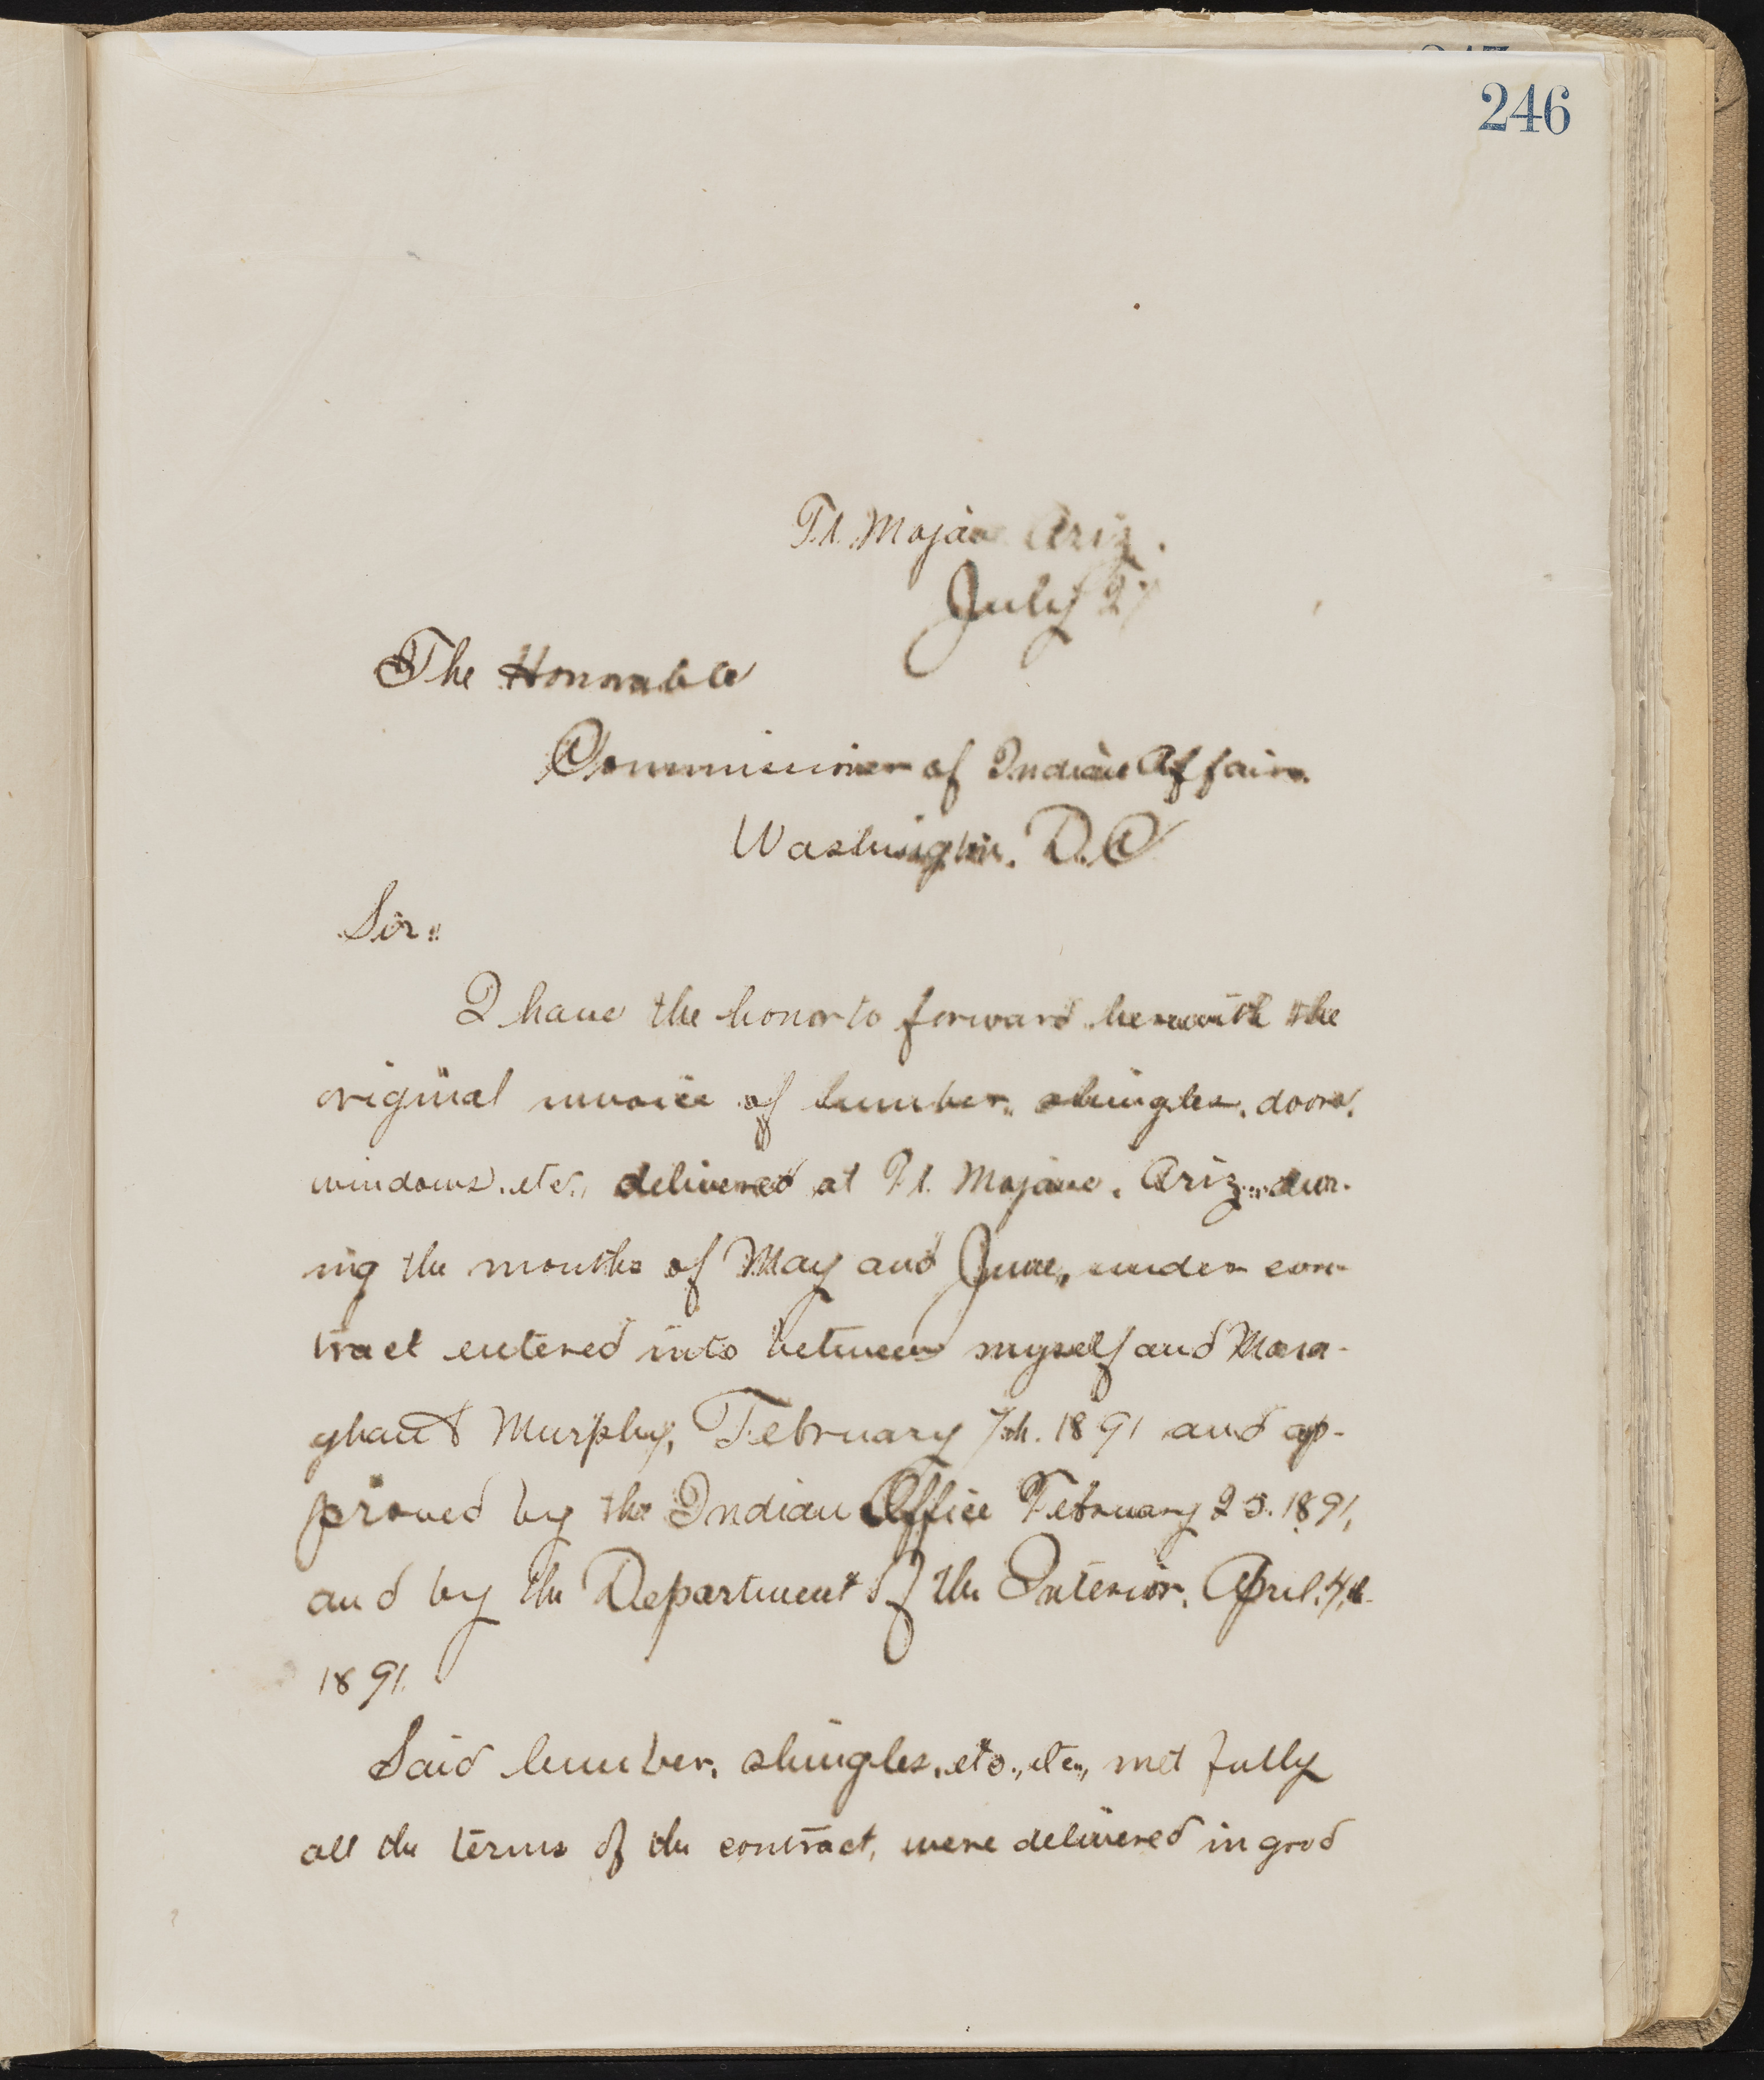 246
Ft. Mojave Ariz.
July 27
The Honorable
Commissioner of Indian Affairs.
Washington. D.C
Sir:
I have the honor to forward herewith the
original invoice of lumber, shingles, doors,
windows, etc., delivered at Ft. Mojave, Ariz., dur-
ing the months of May and June, under con-
tract entered into between myself and Mona-
ghan & Murphy, February 7th. 1891 and ap-
proved by the Indian Office February 25. 1891,
and by the Department of the Interior, April 4th.
1891.
Said lumber, shingles, etc., etc., met fully
all the terms of the contract, were delivered in good